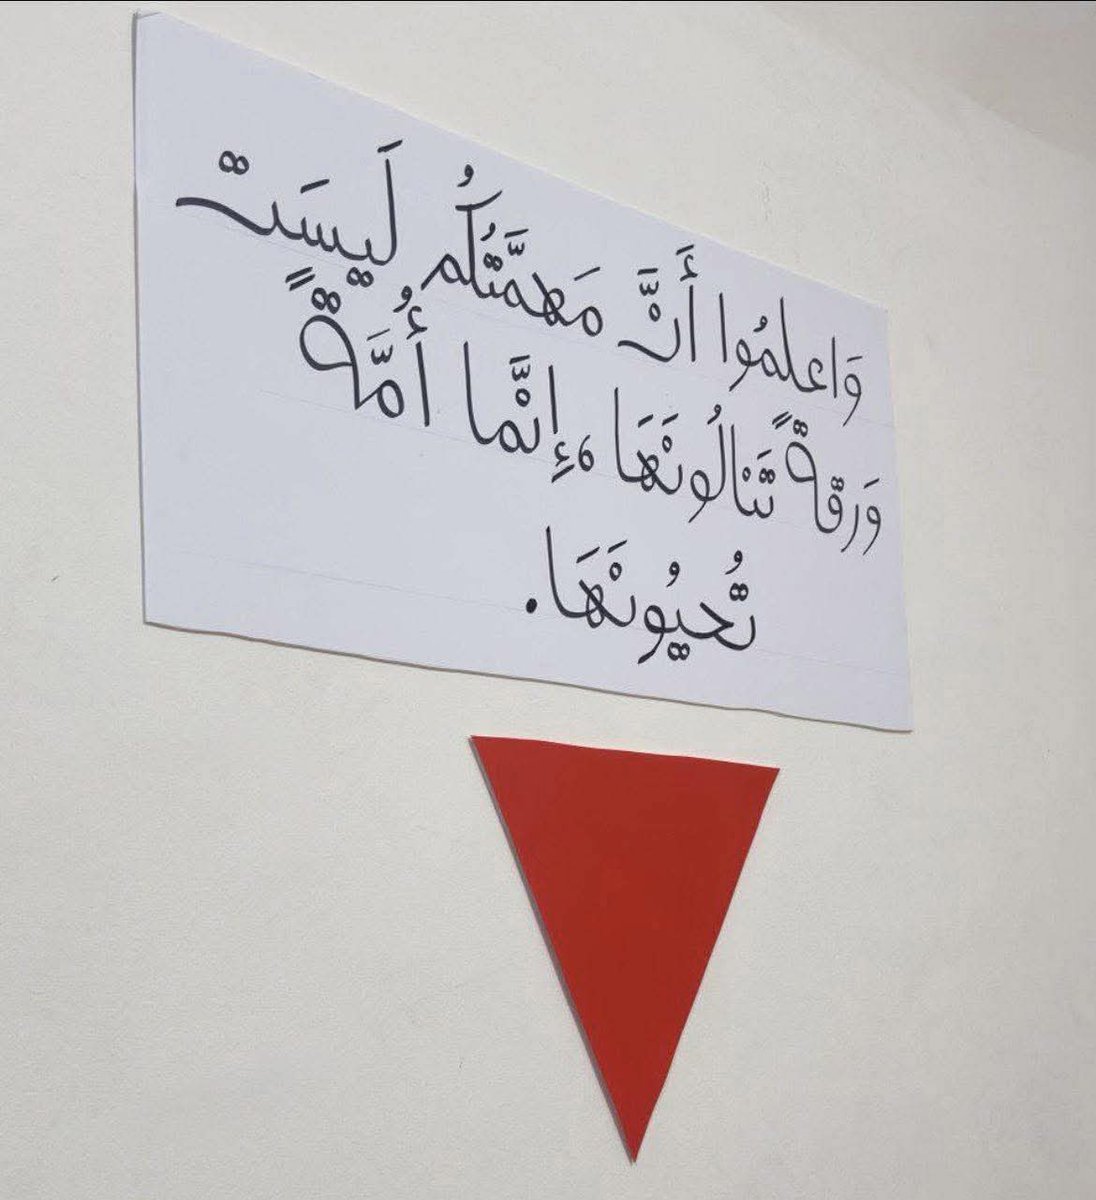 وَاعلمُوا أَنَّ مَهمَّتُكُم لَيسَت
وَرقةً تَنالُونَهَا، إِنَّما أُمَّةً
تُحيُونَهَا.